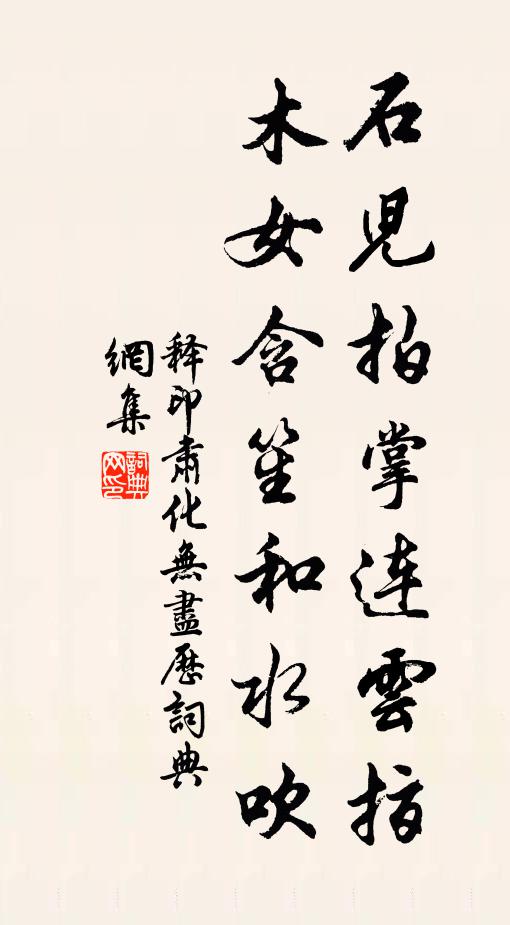 石児拍掌連雲指
木女含笙和水吹
釋印肅化無盡歷詞典
網集
詞典
網印